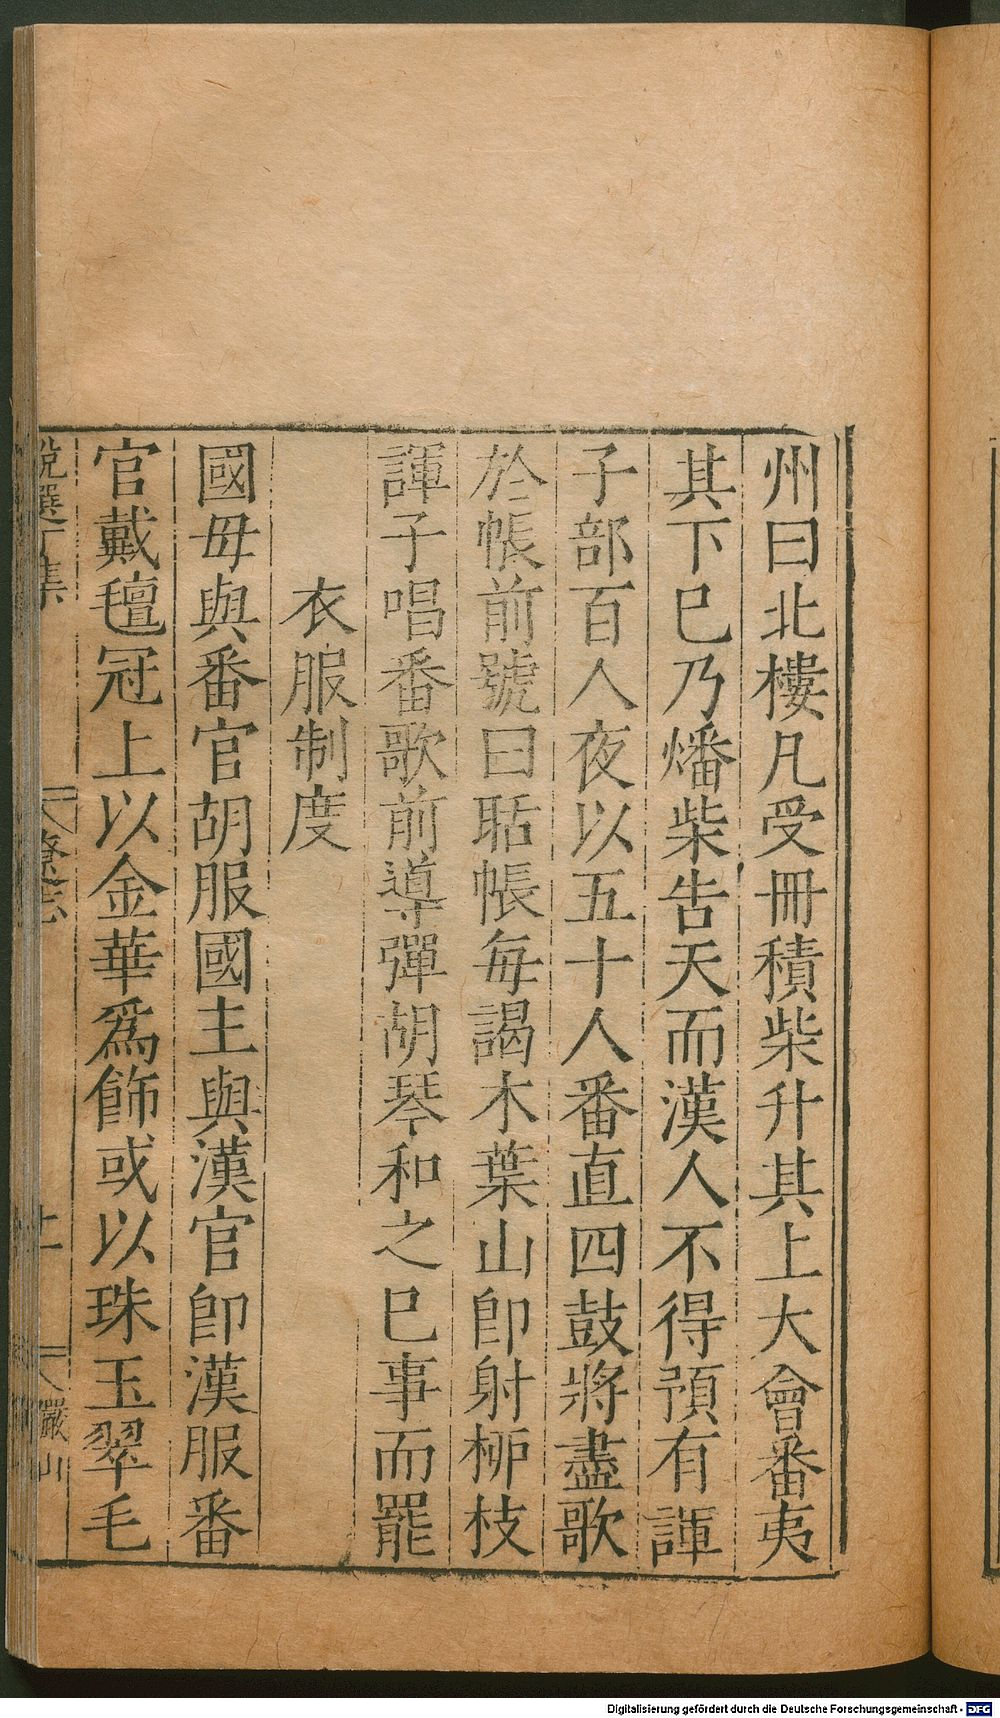 州曰北樓凡受冊積柴升其上大會番夷
其下已乃燔柴告天而漢人不得預有諢
子部百人夜以五十人番直四鼓將盡歌
於帳前號曰聒帳每謁木葉山卽射桺枝
諢子唱番歌前導彈胡琴和之已事而罷
衣服制度
國毋與番官胡服國主與漢官卽漢服番
官戴氊冠上以金華爲飾或以珠玉翠毛
說選丁集
遼志
上
儼山
Digitalisierung gefördert durch die Deutsche Forschungsgemeinschaft - DFG